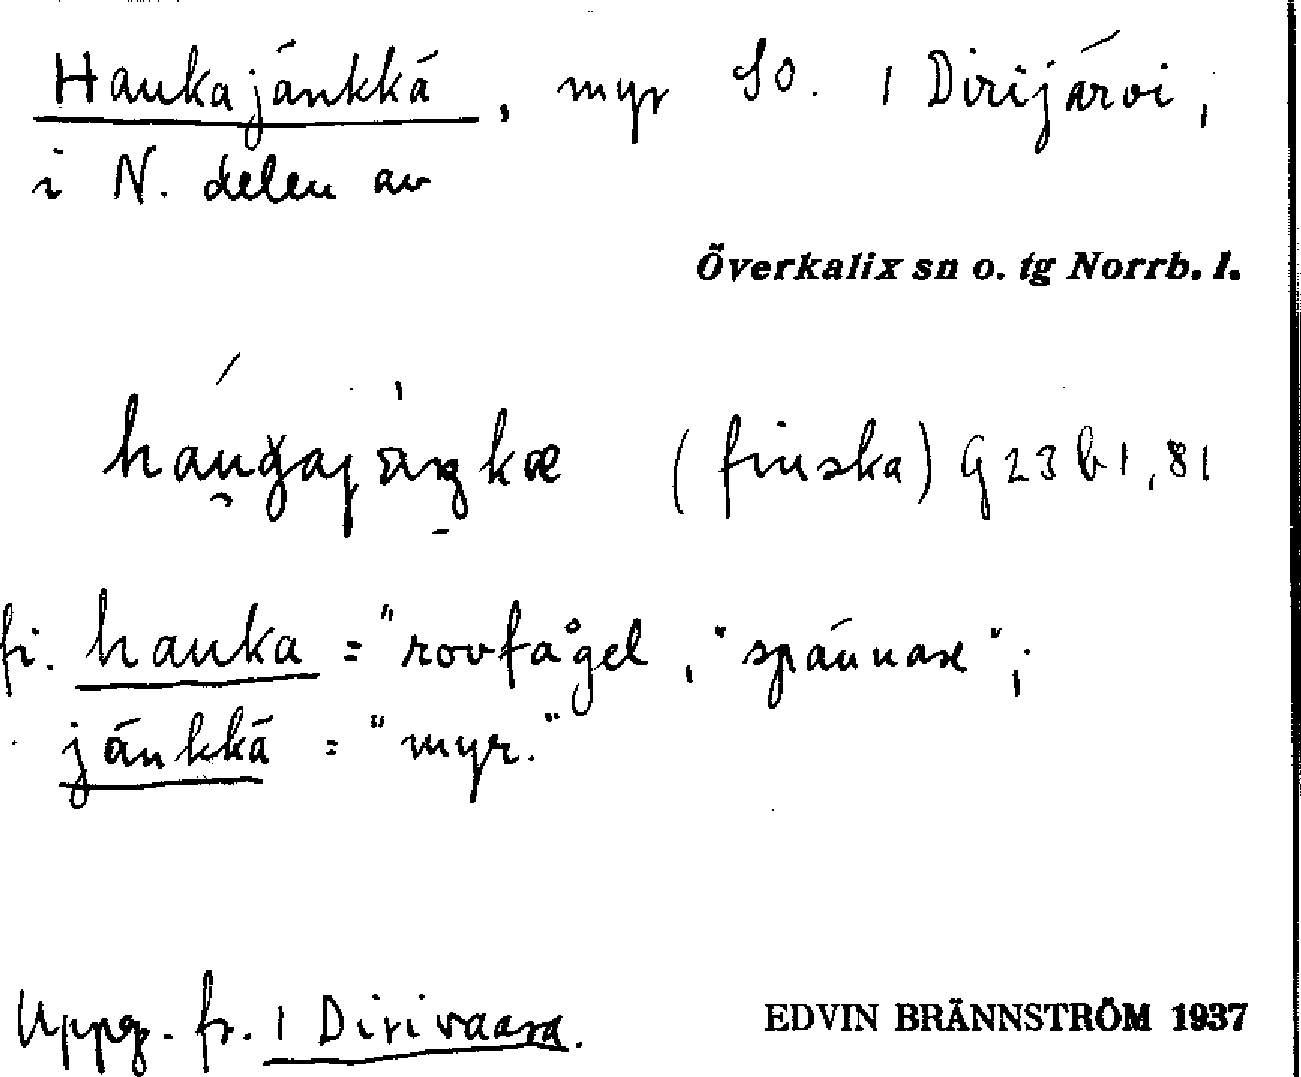 Haukajänkkä, myr SO. 1 Dirijärvi,
i N. delen av
Överkalix sn o. tg Norrb. l.
(finska) G23b1,81
fi. hauka = "rovfågel, "spännare";
jänkkä = "myr."
Uppg. fr. 1 Dirivaara.
EDVIN BRÄNNSTRÖM 1937